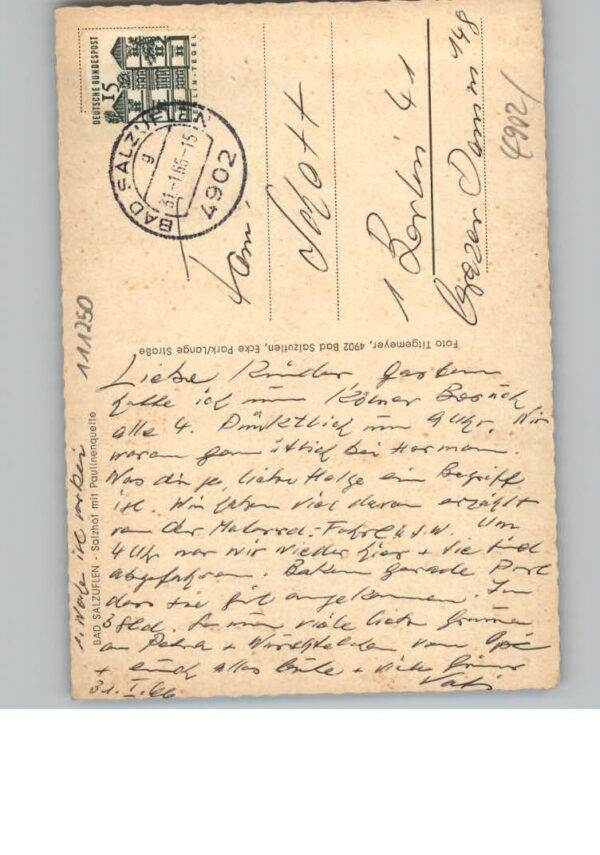 DEUTSCHE BUNDESPOST
15
BERLIN-TEGEL
BAD SALZUFLEN
31.-1.66-15
4902
g
Fam.
Schott
1 Berlin 41
148
4902/
Foto Titgemeyer, 4902 Bad Salzuflen, Ecke Park/Lange Straße
111250
BAD SALZUFLEN - Salzhof mit Paulinenquelle
1. Woche ist vorbei
Liebe Kinder Gestern
hatte ich nun Kölner Besuch
alle 4. Pünktlich um 9 Uhr. Wir
waren gemütlich bei Hermann.
Was dir ja, liebe Helge ein Begriff
ist. Wir haben viel davon erzählt
von der Motorrad-Fahrt u.s.w. Um
4 Uhr war wir wieder hier + sie sind
abgefahren. gerade
dass sie gut angekommen. In
3 Std. So nun viele liebe Grüsse
an Petra + vom Opi
+ euch alles Gute + viele Grüsse
31.I.66 Vati